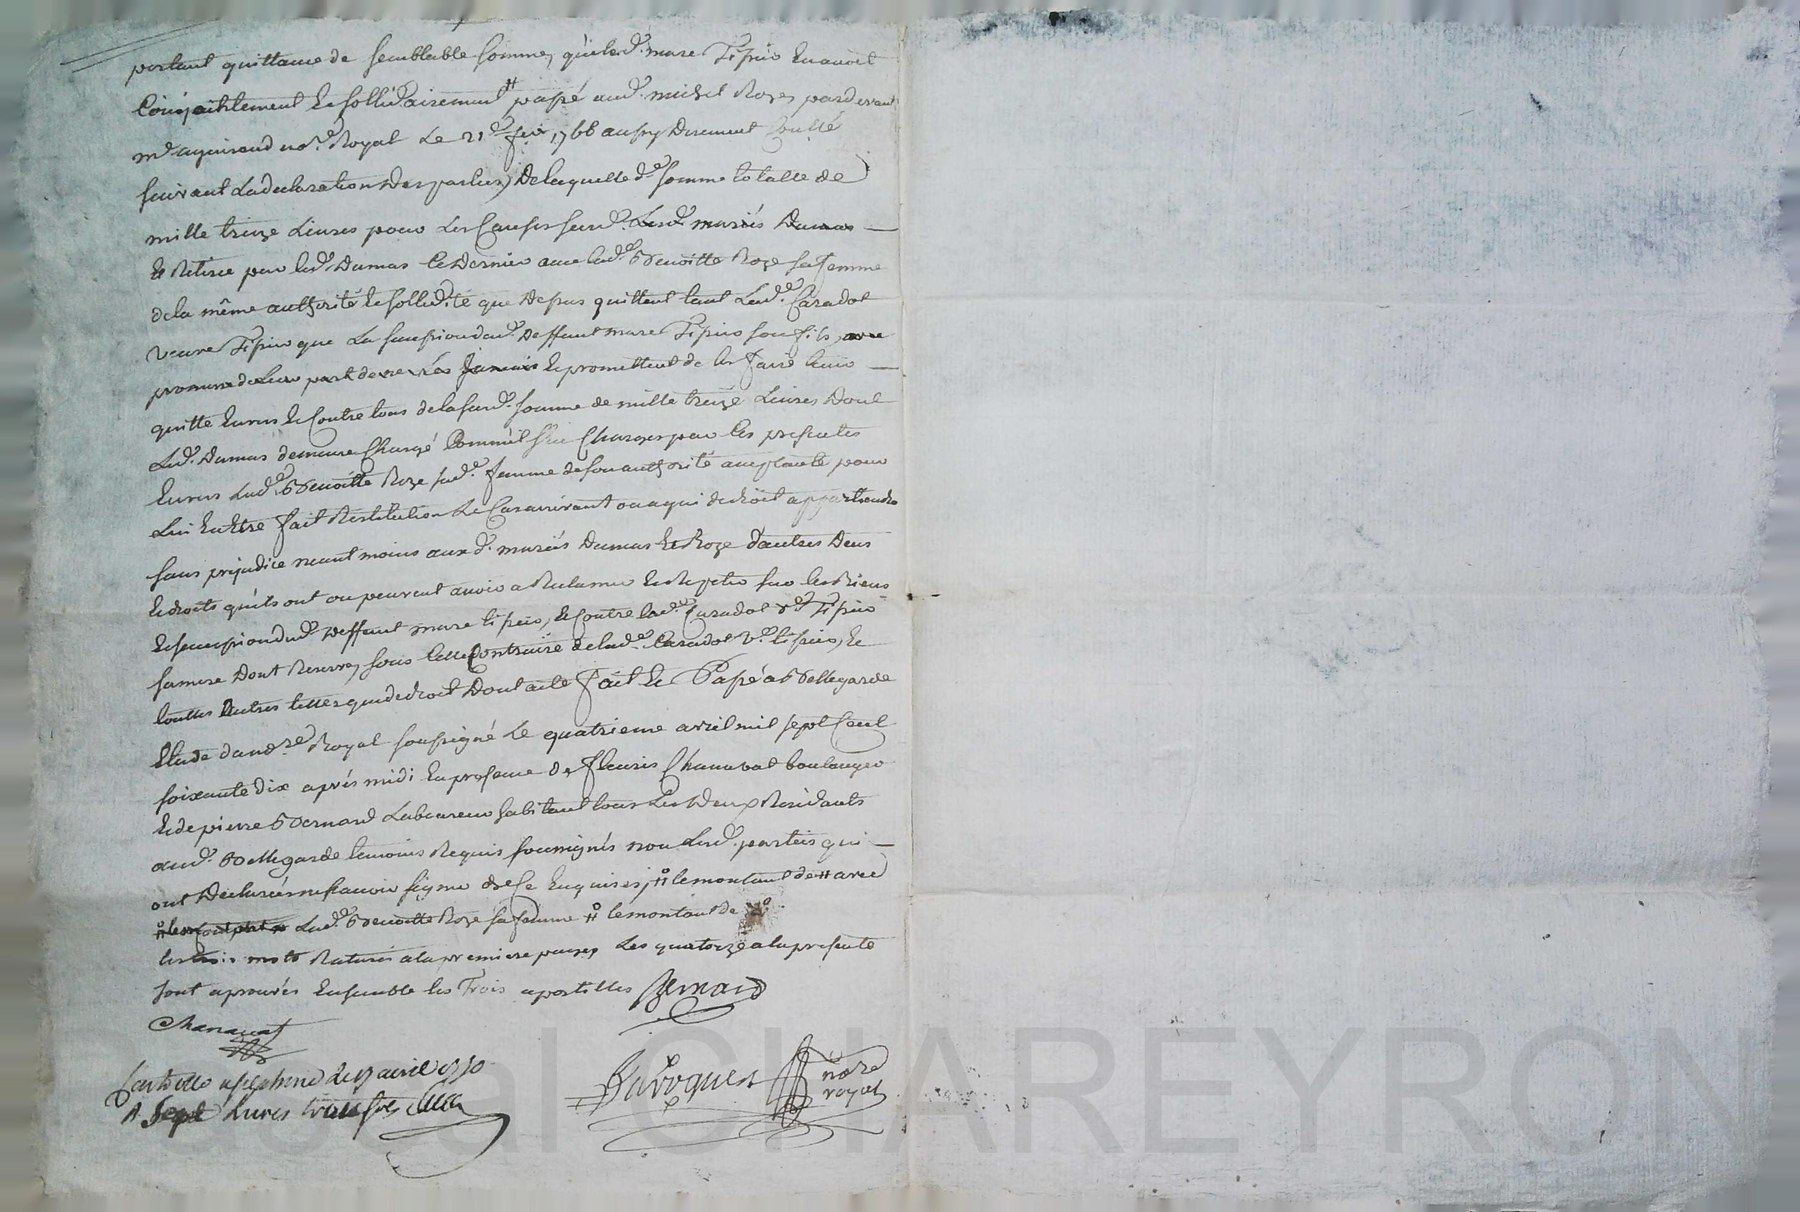 portant quittance de semblable somme, que led. mare Tipiio en avoit
Conjoinctement et sollidairement # passé aud. michel Roze, pardevant
me aguiraud nore. Royal Le 21e fevr 1766 aussy Duement Coullé
suivant La declaration des parties, De laquelle de. somme totalle de
mille treize Livres pour Les Causes susd. Lesd. mariés Dumas —
et Retirée par led. Dumas Ce dernier avec lad. Benoitte Roze sa femme
de la même authorité et sollidité que dessus quittent tant Lade. Caradot
veuve Tipiio que La succession dud. deffunt mare Tipiio son fils, avec
promesse de leur part de ne rien Jamais et promettent de les faire tenir —
quitte Envers et Contre tous de la susd. somme de mille treize Livres Dont
Led. Dumas demeure Chargé Comm'il s'en Charge par les presentes
Envers Lade. Benoitte Roze sade. femme de son authorité acceptante pour
Lui En Etre fait Restitution Le Cas arrivant ou a qui de droit appartiendra
sans prejudice neant moins auxd. mariés Dumas et Roze d'autres Deus
et droits qu'ils ont ou peuvent avoir a Reclamer et Repeter sur les Biens
et succession dud. deffunt mare tipiio, et Contre lade. Caradot ve. Tipiio
sa mere Dont Reserve, sous celle Contraire de lade. Caradot Ve. tipiio, et
touttes autres telles que de droit Dont acte fait et Passé a Bellegarde
Etude du nore. Royal soussigné Le quatrieme avril mil sept Cent
soixante dix après midi En presence de fleuris Chanavat boulanger
et de pierre Bernard Laboureur habitant tous Les deux Residants
aud. Bellegarde temoins Requis soussignés non Lesd. parties qui —
ont Déclarées ne sçavoir signer de ce Enquises, # le montant de # avec
Lade. Benoitte Roze sa femme # le montant de
les trois mots Raturés a la premiere page, Les quatorze a la presente
sont aprouvés Ensemble les Trois apostilles Bernard
Chanavat
Controllé a St. le 17 avril 1770
A Sept Livres
Duroquet
nore
royal
Pascal CHAREYRON